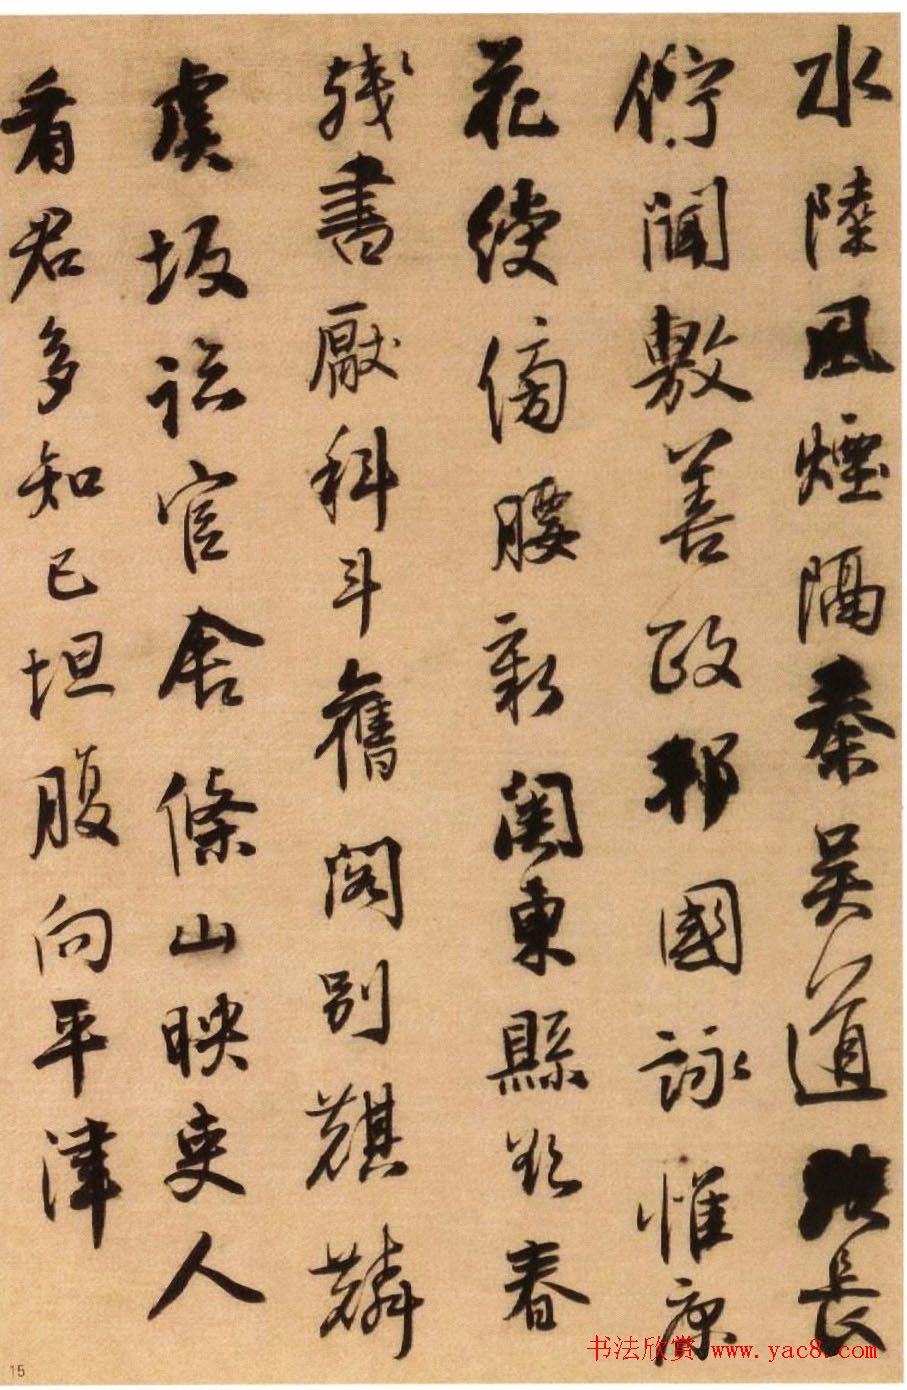 水陸風煙隔秦吳道路長
佇聞敷善政邦國詠惟康
花綬傍腰新關東縣欲春
殘書厭科斗舊閣別麒麟
虞坂臨官舍條山映吏人
看君多知己坦腹向平津
15
书法欣赏 www.yac8.com